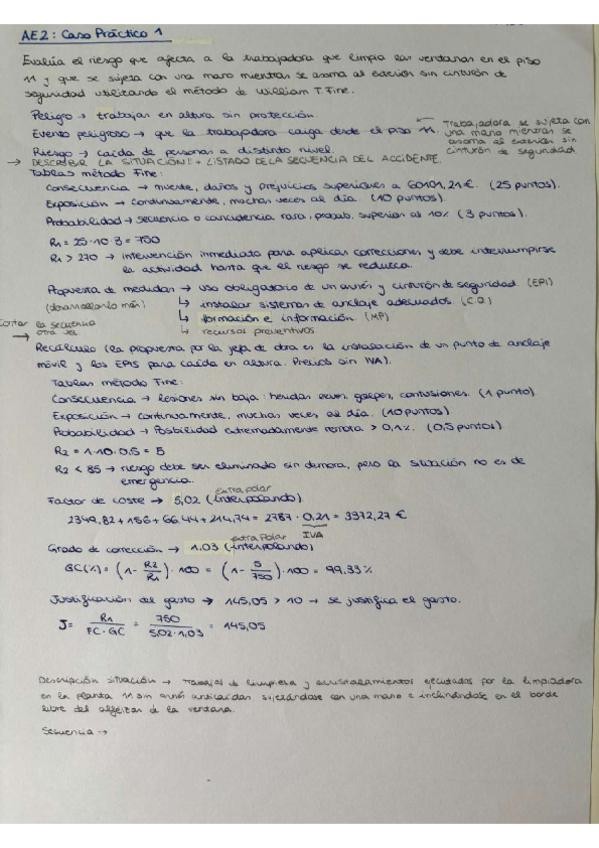 AE2: Caso Práctico 1
Evalúa el riesgo que afecta a la trabajadora que limpia las ventanas en el piso
11 y que se sujeta con una mano mientras se asoma al exterior sin cinturón de
seguridad utilizando el método de William T. Fine.
Peligro → trabajar en altura sin protección.
Evento peligroso → que la trabajadora caiga desde el piso 11.
← Trabajadora se sujeta con
una mano mientras se
asoma al exterior sin
cinturón de seguridad.
Riesgo → caída de personas a distinto nivel.
→ DESCRIBIR LA SITUACIÓN! + LISTADO DE LA SECUENCIA DEL ACCIDENTE.
Tablas método Fine:
Consecuencia → muerte, daños y prejuicios superiores a 60101,21 €. (25 puntos).
Exposición → Continuamente, muchas veces al día. (10 puntos).
Probabilidad → secuencia o coincidencia rara, probab. superior al 10% (3 puntos).
R1 = 25·10·3 = 750
R1 > 270 → intervención inmediata para aplicar correcciones y debe interrumpirse
la actividad hasta que el riesgo se reduzca.
Propuesta de medidas → uso obligatorio de un arnés y cinturón de seguridad. (EPI)
(desarrollarlo más) ↳ instalar sistemas de anclaje adecuados. (C.O)
↳ formación e información. (MP)
↳ recursos preventivos
Cortar la secuencia
otra vez →
Recálculo (la propuesta por la jefa de obra es la instalación de un punto de anclaje
móvil y los EPIS para caída en altura. Precios sin IVA).
Tablas método Fine:
Consecuencia → lesiones sin baja: heridas leves, golpes, contusiones. (1 punto).
Exposición → continuamente, muchas veces al día. (10 puntos).
Probabilidad → Posibilidad extremadamente remota > 0,1%. (0,5 puntos).
R2 = 1·10·0,5 = 5
R2 < 85 → riesgo debe ser eliminado sin demora, pero la situación no es de
emergencia.
extrapolar
Factor de coste → 5,02 (interpolando)
2349,82 + 156 + 66.44 + 214,74 = 2787 · 0,21 = 3372,27 €
IVA
extra Polar
Grado de corrección → 1.03 (interpolando)
GC(%) = (1 - R2/R1) · 100 = (1 - 5/750) · 100 = 99.33%
Justificación del gasto → 145,05 > 10 → se justifica el gasto.
J = R1/FC·GC = 750/5,02·1,03 = 145,05
Descripción situación → Trabajos de limpieza y ejecutados por la limpiadora
en la planta 11 sin arnés anticaídas sujetándose con una mano e inclinándose en el borde
libre del alféizar de la ventana.
Secuencia →